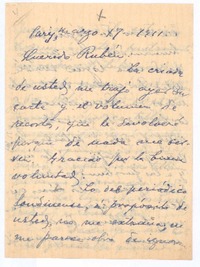 +
Paris, marzo 27 1911
Querido Rubén:
La criada
de usted me trajo ayer su
carta y el volumen de
que le devuelvo
porque de nada me sir-
ve. Gracias por la buena
voluntad.
Lo del periódico
a propósito de
usted, no me extraña, ni
me